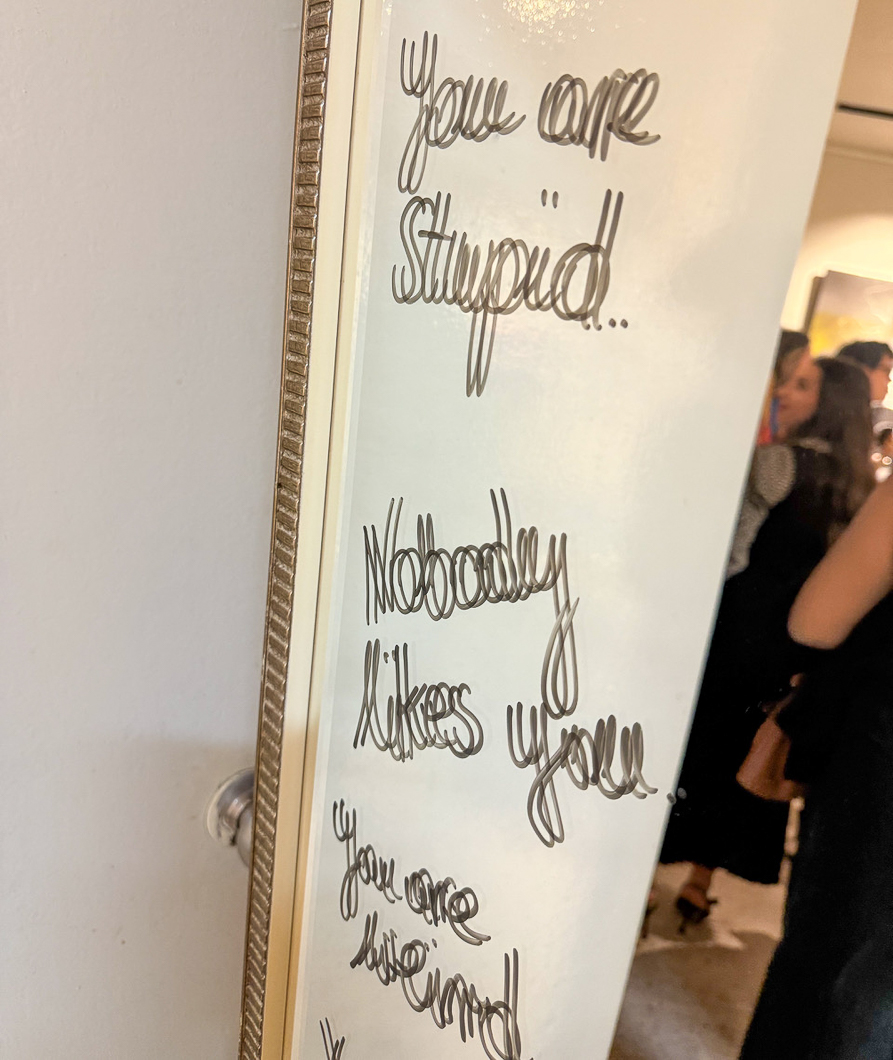 You are
Stupid.
Nobody
likes you.
You are